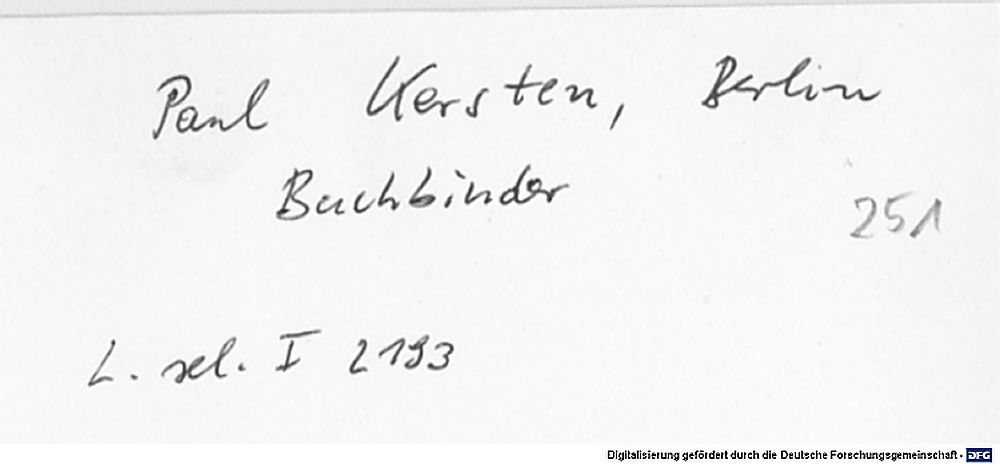 Paul Kersten, Berlin
Buchbinder
251
L. sel. I 2193
Digitalisierung gefördert durch die Deutsche Forschungsgemeinschaft - DFG